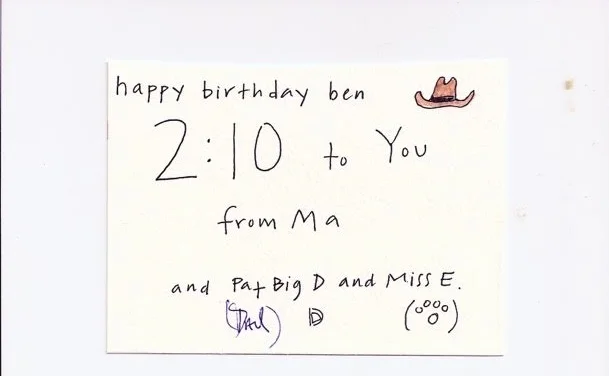 happy birthday ben
2:10 to You
from Ma
and Pat Big D and Miss E.
(Dad) D